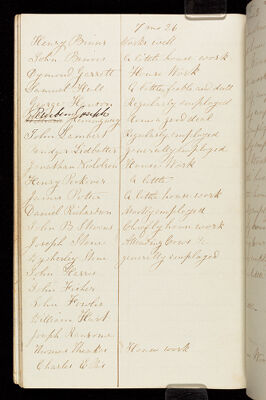 7 mo 26
Henry Brians works well
John Brown A little house work
Osmond Garrett House Work
Samuel Hall A little, feeble and dull
George Hanson Regularly employed
Reuben Joseph
Hemingway Works a good deal
John Lambert Regularly employed
Ledbetter Generally employed
Jonathan Nicholson House Work
Henry A little
James Potter A little house work
Daniel Richardson Mostly employed
John B Stevens Chiefly house work
Joseph Stone Attending Cows &c
Stone generally employed
John Harris
John Fisher
John Fowler
William Hart
Joseph Ransome
Thomas House work
Charles Ellis